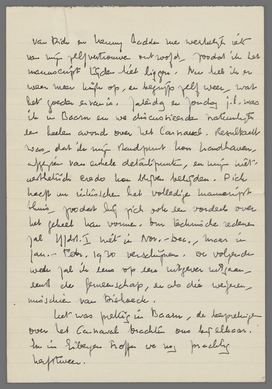 van Dirk en Henny hadden me werkelijk iets
van mijn zelfvertrouwen ontroofd, zoodat ik het
manuscript liet liggen. Nu heb ik er
weer meer kijk op, en begrijp zelf weer, wat
het goede ervan is. Zaterdag en Zondag j.l. was
ik in Baarn en we discussieerden natuurlijk
een heelen avond over het Carnaval. Resultaat
was, dat ik mijn standpunt kon handhaven,
afgezien van enkele detailpunten, en mijn
aesthetisch credo kon blijven belijden. Dick
heeft nu het volledige manuscript
thuis, zoodat hij zich ook een oordeel over
het geheel kan vormen. Om technische redenen
zal I niet in Nov.-Dec., maar in
Jan.-Febr. 1930 verschijnen. De volgende
week zal ik eens op een uitgever uitgaan,
eerst de Gemeenschap, en als die weigeren,
misschien van Dishoeck.
Het was prettig in Baarn, de besprekingen
over het Carnaval brachten ons bij elkaar.
En in Eibergen troffen we nog prachtig
herfstweer.